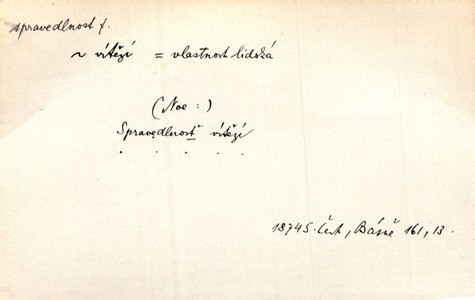 spravedlnost f.
~ vítězí = vlastnost lidská
(Noe:)
Spravedlnosť vítězí
. . . . .
1874 S. Čech, Básně 161, 13.